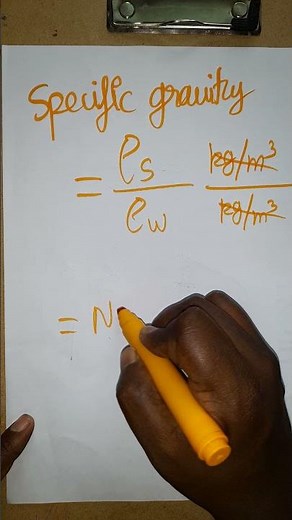 Specific gravity
= ρs/ρw kg/m³/kg/m³
= N